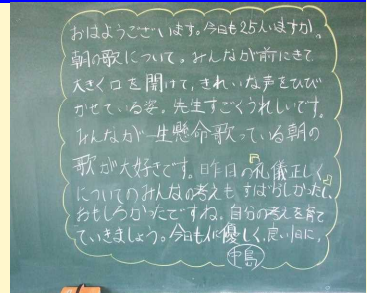 おはようございます。今日も25人いますか。
朝の歌について。みんなが前にきて
大きく口を開けて、きれいな声をひび
かせている姿。先生すごくうれしいです。
みんなが一生懸命歌っている朝の
歌が大好きです。昨日の『礼儀正しく』
についてのみんなの考えもすばらしかったし、
おもしろかったですね。自分の考えを育て
ていきましょう。今日も人に優しく、良い1日に。
中島